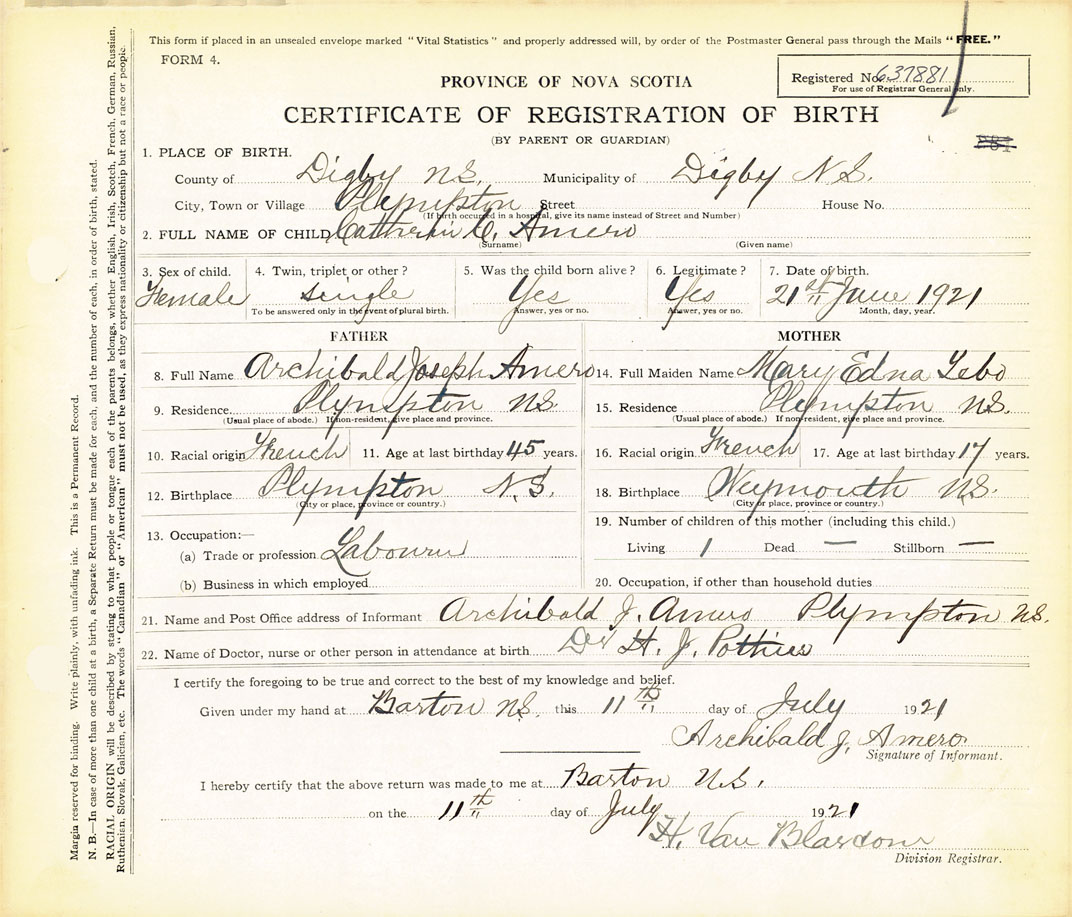 This form if placed in an unsealed envelope marked "Vital Statistics" and properly addressed will, by order of the Postmaster General pass through the Mails "FREE."
FORM 4.
Registered No. 637881
For use of Registrar General only.
PROVINCE OF NOVA SCOTIA
CERTIFICATE OF REGISTRATION OF BIRTH
(BY PARENT OR GUARDIAN)
1. PLACE OF BIRTH.
County of Digby N.S. Municipality of Digby N.S.
City, Town or Village Plympton Street House No.
(If birth occured in a hospital, give its name instead of Street and Number)
2. FULL NAME OF CHILD Catherin C. Amero
(Surname) (Given name)
3. Sex of child. 4. Twin, triplet or other? 5. Was the child born alive? 6. Legitimate? 7. Date of birth.
Female single Yes Yes 21st June 1921
To be answered only in the event of plural birth. Answer, yes or no. Answer, yes or no. Month, day, year.
FATHER MOTHER
8. Full Name Archibald Joseph Amero 14. Full Maiden Name Mary Edna Lebo
9. Residence. Plympton N.S. 15. Residence Plympton N.S.
(Usual place of abode.) If non-resident, give place and province. (Usual place of abode.) If non-resident, give place and province.
10. Racial origin French 11. Age at last birthday 45 years. 16. Racial origin French 17. Age at last birthday 17 years.
12. Birthplace Plympton N.S. 18. Birthplace Weymouth N.S.
(City or place, province or country.) (City or place, province or country.)
13. Occupation:— 19. Number of children of this mother (including this child.)
(a) Trade or profession Labourer Living 1 Dead — Stillborn —
(b) Business in which employed 20. Occupation, if other than household duties
21. Name and Post Office address of Informant Archibald J. Amero Plympton N.S.
22. Name of Doctor, nurse or other person in attendance at birth Dr H. J. Pothier
I certify the foregoing to be true and correct to the best of my knowledge and belief.
Given under my hand at Barton N.S. this 11th day of July 1921
Archibald J. Amero
Signature of Informant.
I hereby certify that the above return was made to me at Barton N.S.
on the 11th day of July 1921
H. Van Blarcom
Division Registrar.
Margia reserved for binding. Write plainly, with unfading ink. This is a Permanent Record.
N. B.—In case of more than one child at a birth, a Separate Return must be made for each, and the number of each, in order of birth, stated.
RACIAL ORIGIN will be described by stating to what people or tongue each of the parents belongs, whether English, Irish, Scotch, French, German, Russian,
Ruthenian, Slovak, Galician, etc. The words "Canadian" or "American" must not be used, as they express nationality or citizenship but not a race or people.